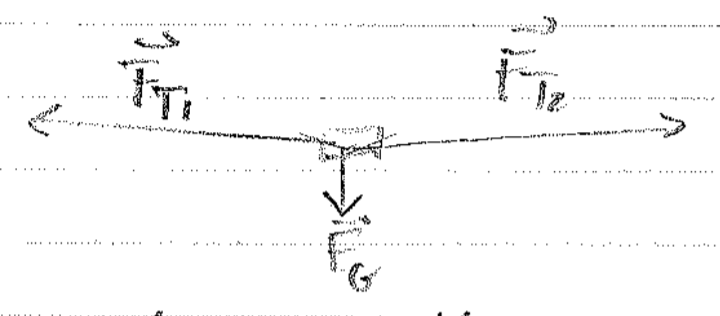 F⃗_T1 F⃗_T2
F⃗_G